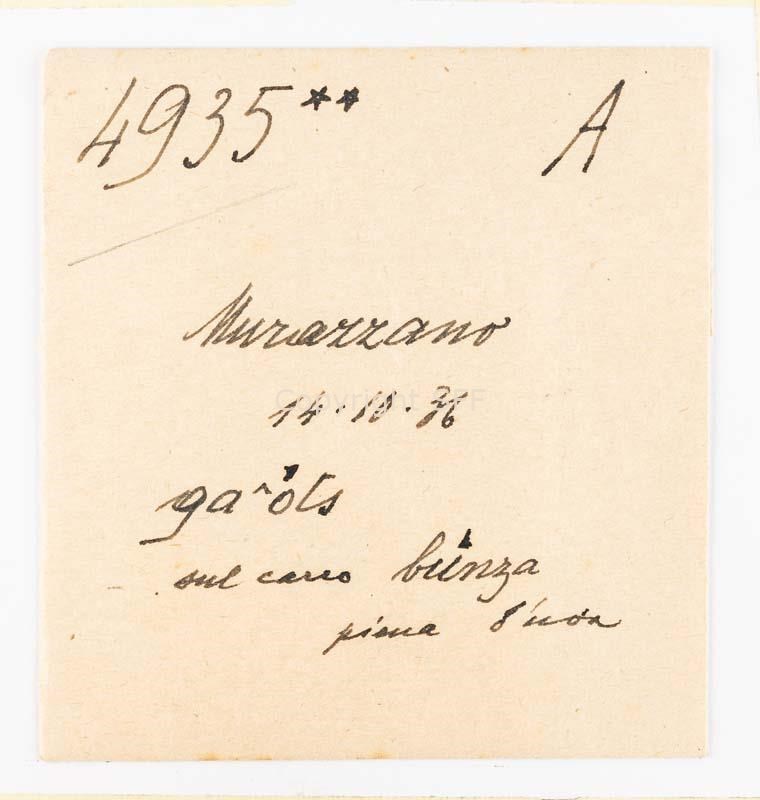 4935** A
Murazzano
ga^óts
sul carro búnza
piena d'uva